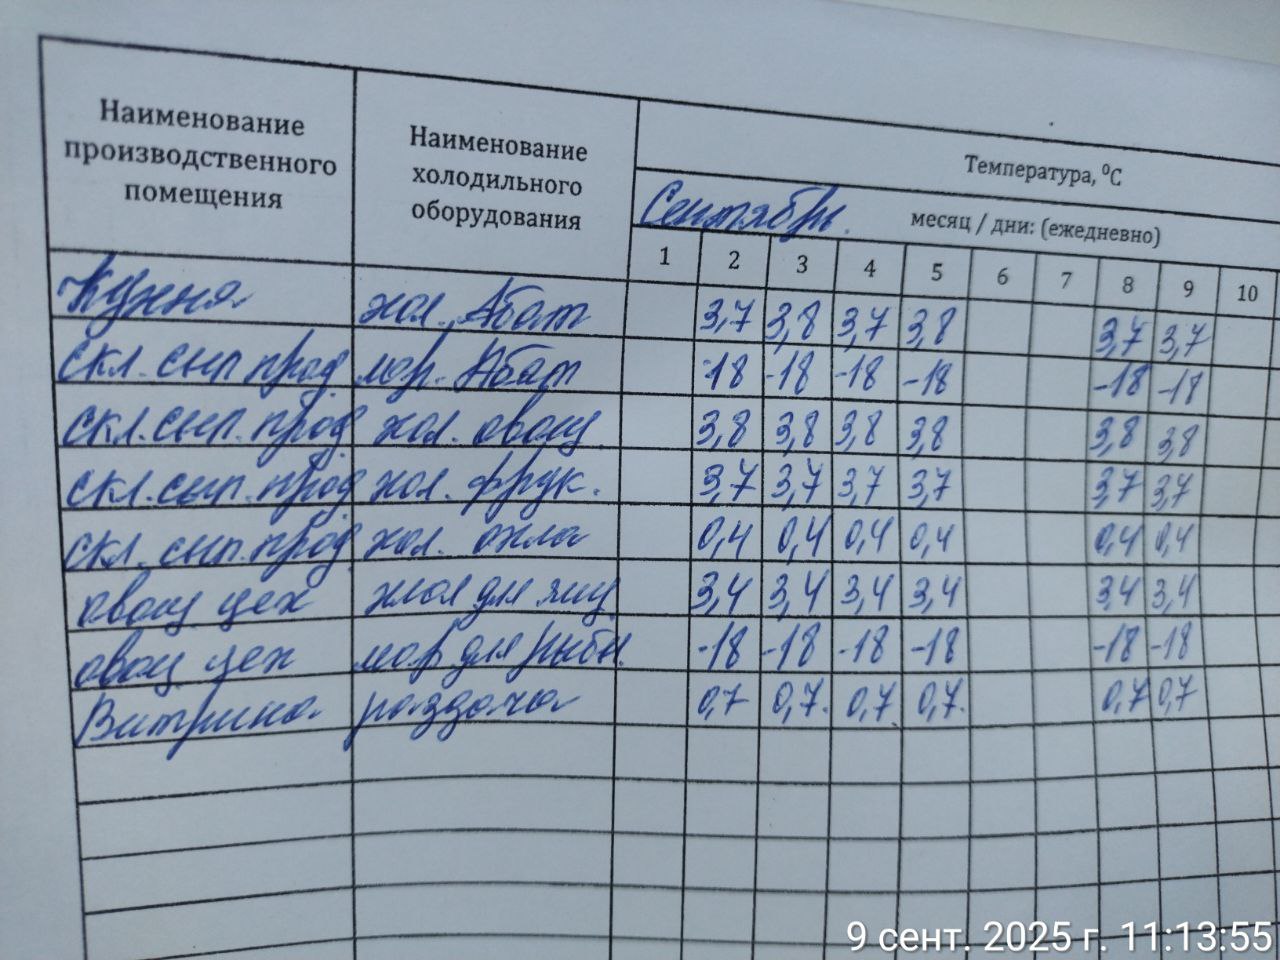 Наименование производственного помещения
Наименование холодильного оборудования
Температура, ⁰С
Сентябрь. месяц / дни: (ежедневно)
1 2 3 4 5 6 7 8 9 10
Кухня хол. Абат 3,7 3,8 3,7 3,8 3,7 3,7
скл. сып прод мор. Абат -18 -18 -18 -18 -18 -18
скл. сып. прод хол. овощ. 3,8 3,8 3,8 3,8 3,8 3,8
скл. сып. прод хол. фрук. 3,7 3,7 3,7 3,7 3,7 3,7
скл. сып. прод хол. 0,4 0,4 0,4 0,4 0,4 0,4
овощ цех хол для яиц 3,4 3,4 3,4 3,4 3,4 3,4
овощ цех мор для рыбы. -18 -18 -18 -18 -18 -18
Витрина раздача 0,7 0,7. 0,7. 0,7. 0,7 0,7
9 сент. 2025 г. 11:13:55